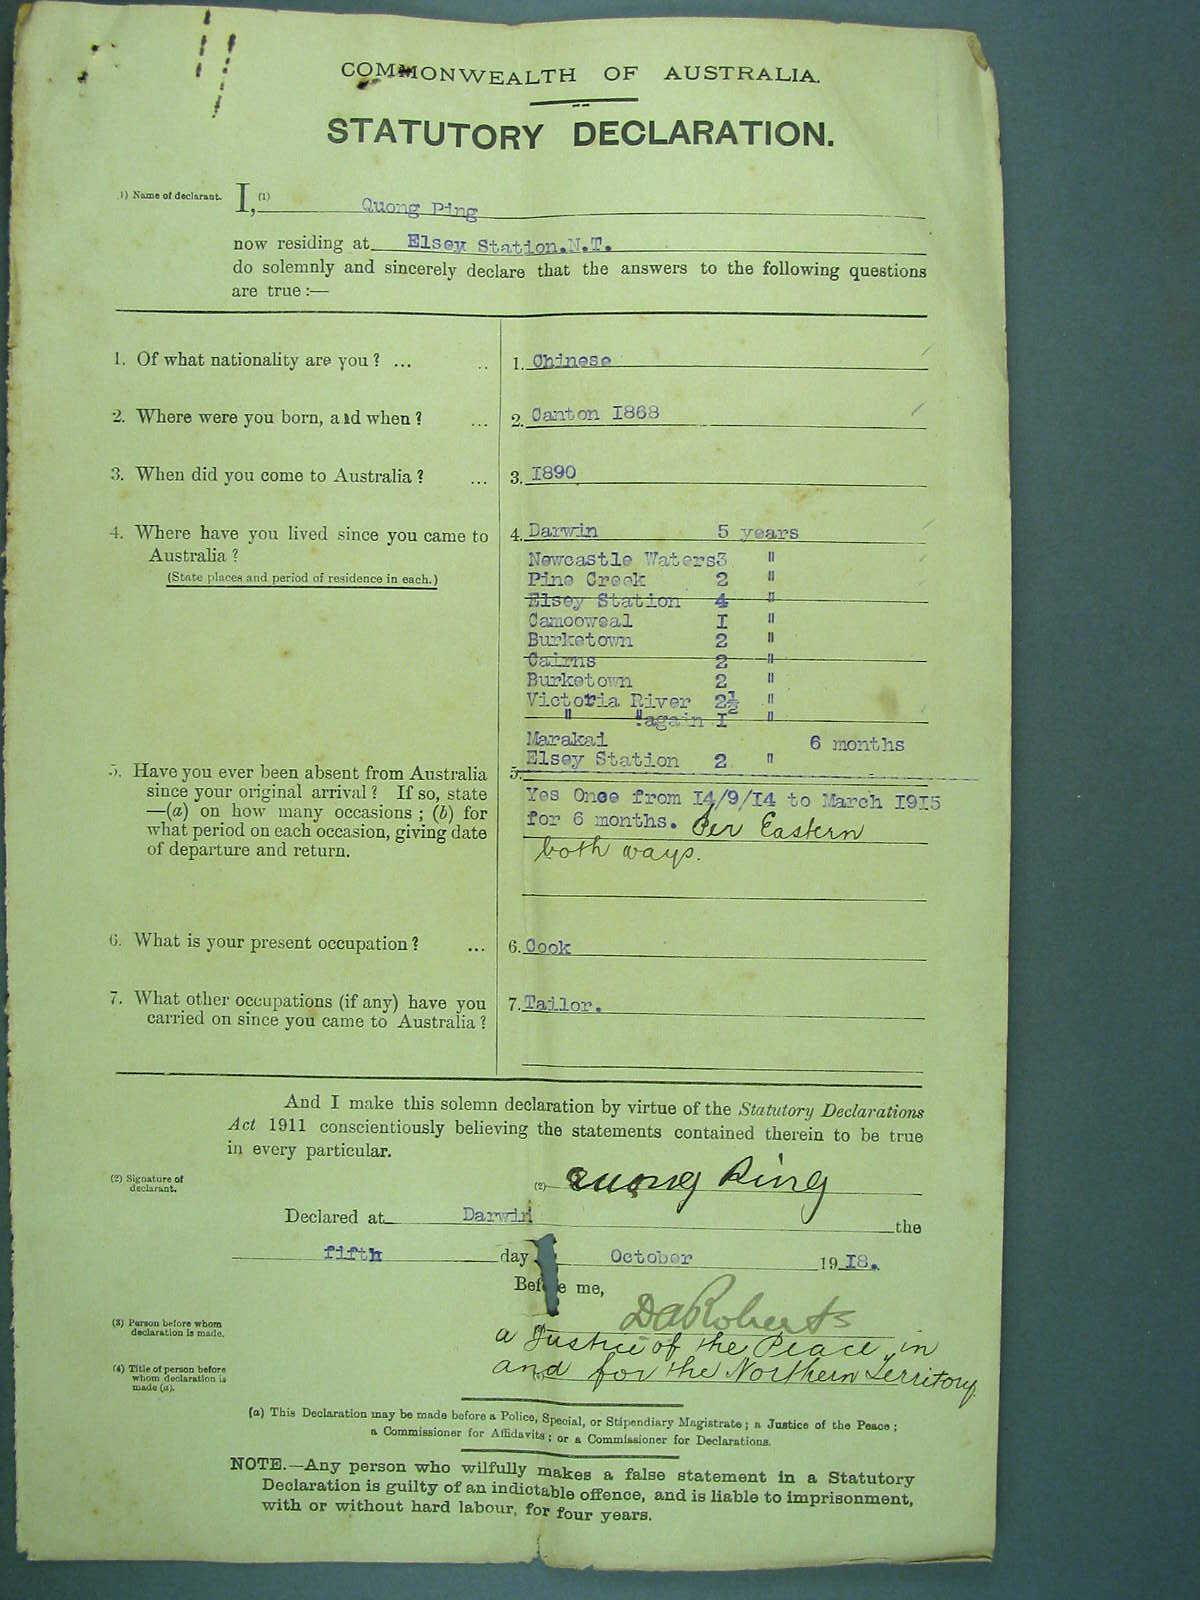 COMMONWEALTH OF AUSTRALIA.
STATUTORY DECLARATION.
1) Name of declarant. I, (1) Quong Ping
now residing at Elsey Station.N.T.
do solemnly and sincerely declare that the answers to the following questions
are true :—
1. Of what nationality are you ? ... .. 1. Chinese
2. Where were you born, and when ? ... 2. Canton I868
3. When did you come to Australia ? ... 3. I890
4. Where have you lived since you came to
Australia ?
(State places and period of residence in each.)
4. Darwin 5 years
Newcastle Waters3 "
Pine Creek 2 "
Elsey Station 4 "
Camooweal I "
Burketown 2 "
Cairns 2 "
Burketown 2 "
Victoria River 2½ "
" "again I "
Marakai 6 months
Elsey Station 2 "
5. Have you ever been absent from Australia
since your original arrival ? If so, state
—(a) on how many occasions ; (b) for
what period on each occasion, giving date
of departure and return.
5.
Yes Once from I4/9/I4 to March I9I5
for 6 months. Per Eastern
both ways.
6. What is your present occupation ? ... 6. Cook
7. What other occupations (if any) have you
carried on since you came to Australia ?
7. Tailor.
And I make this solemn declaration by virtue of the Statutory Declarations
Act 1911 conscientiously believing the statements contained therein to be true
in every particular.
(2) Signature of
declarant.
(2) Quong Ping
Declared at Darwin the
fifth day October 19 I8.
Before me,
D A Roberts
(3) Person before whom
declaration is made.
a Justice of the Peace, in
and for the Northern Territory.
(4) Title of person before
whom declaration is
made (a).
(a) This Declaration may be made before a Police, Special, or Stipendiary Magistrate ; a Justice of the Peace ;
a Commissioner for Affidavits ; or a Commissioner for Declarations.
NOTE.—Any person who wilfully makes a false statement in a Statutory
Declaration is guilty of an indictable offence, and is liable to imprisonment,
with or without hard labour, for four years.